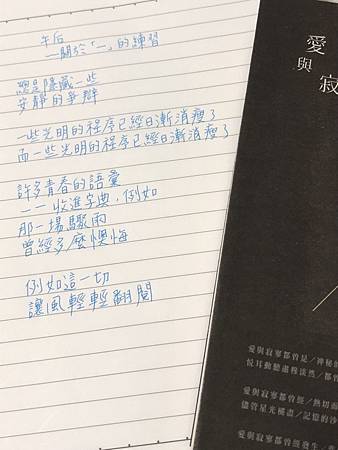 午后
—關於「一」的練習
總是隱藏一些
安靜的爭辯
一些光明的程序已經日漸消瘦了
而一些光明的程序已經日漸消瘦了
許多青春的語彙
一一收進字典,例如
那一場驟雨
曾經多麼懊悔
例如這一切
讓風輕輕翻閱
愛
與
寂
愛與寂寥都曾是/神秘
悅耳動聽
淡然/都曾
愛與寂寥都曾經/熱切而
儘管星光
/記憶的沙
愛與寂寥都曾經發生/